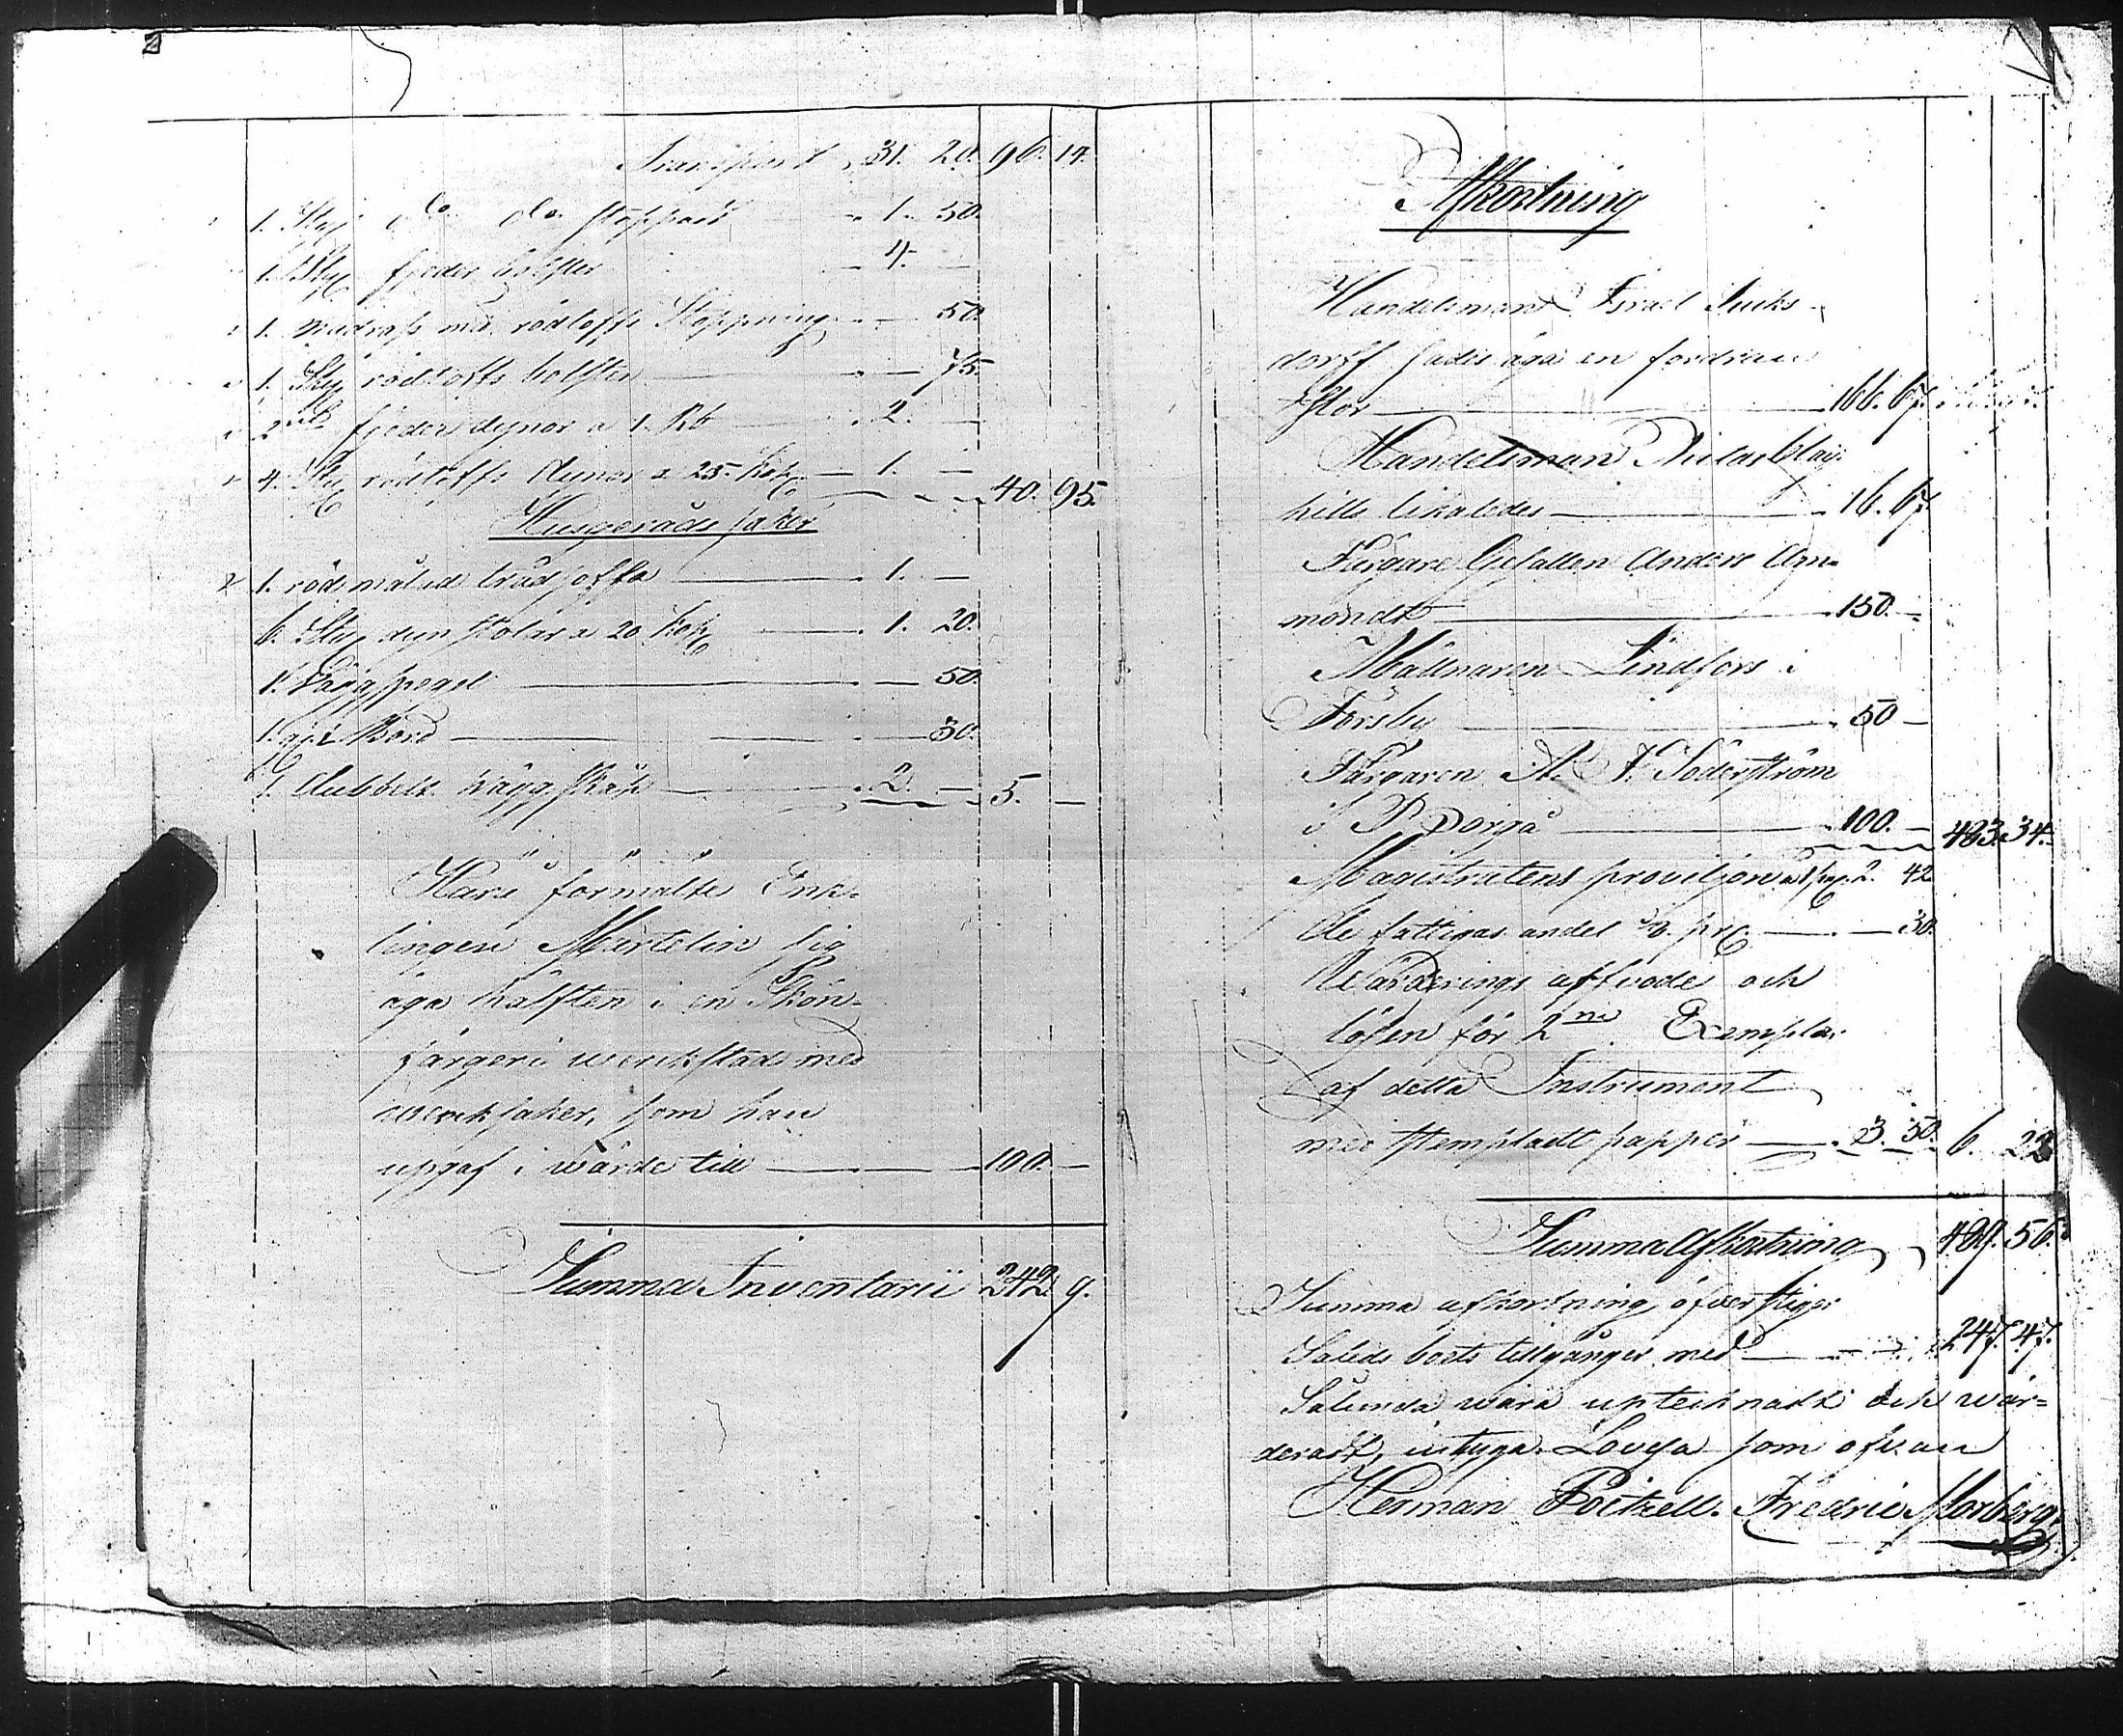 Transport 31. 20. 96. 14.
1. Sty do do stoppad 1. 50.
1. Sty fjeder bolster 4. —
1. madrass med rödtofts Stoppning — 50.
1. Sty rödtofts bolster — 75.
2 ne fjeder dynor a 1. Rb 2. —
4. Sty rödtofts dynor a 25. Kop. 1. — 40. 95.
Husgeråds saker
1. rödmålad träd soffa 1. —
6. Sty dyn stolar a 20 Kop 1. 20.
1. Väggspegel — 50.
1. Bord — 30.
1. dubbelt vägg skåp 2. — 5. —
Häri förmälte Enk-
lingen Martelin sig
äga hälften i en Skön-
färgeri werkstad med
werksaker, som han
uppgaf i wärde till 100. —
Summa Inventarii 242. 9.
Afkortning
Handelsman Israel Sucks-
dorff sades äga en fordran
stor 166. 67.
Handelsman
hills likaledes 16. 67
Färgare Gesällen Anders Am-
mondt 150. —
Mållnaren Lindfors i
Forsby 50 —
Färgaren A. F. Söderström
i Borgå 100. — 483. 34.
Magistratens provision 2. 42
de fattigas andel — 30.
Wärderings arfvode och
lösen för 2 ne Exemplar
af detta Instrument
med stempladt papper 3. 50. 6. 22
Summa Afkortning 489. 56.
Summa afkortning öfverstiger
Således boets tillgångar med 247. 47.
Sålunda wara uptecknadt och wär-
deradt, intyga. Lovisa som ofvan
Herman Poitzell. Fredric Morberg.